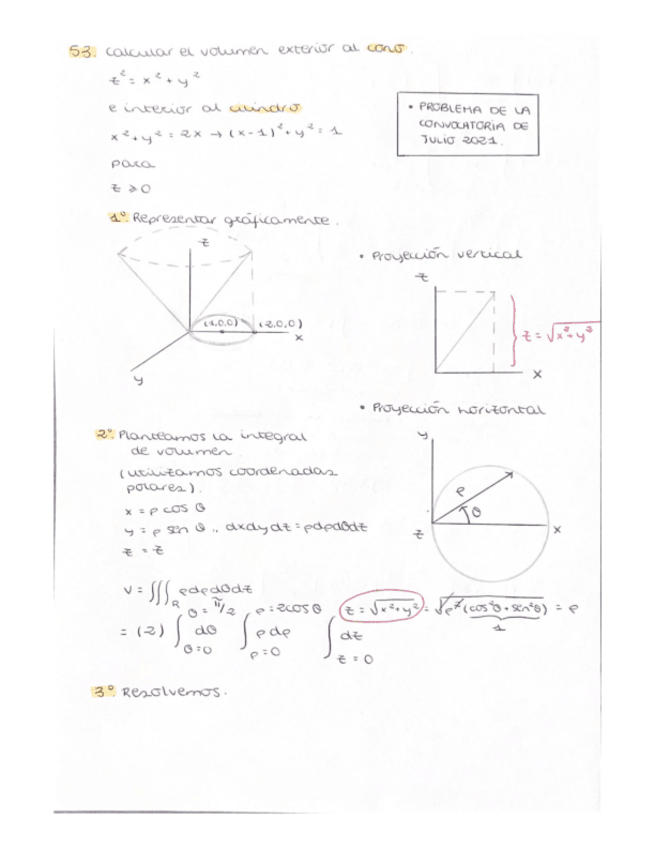 53. Calcular el volumen exterior al cono.
z² = x² + y²
e interior al cilindro
x² + y² = 2x → (x-1)² + y² = 1
para
z ⩾ 0
• PROBLEMA DE LA
CONVOCATORIA DE
JULIO 2021.
1º. Representar gráficamente.
z
(1,0,0) (2,0,0)
x
y
• Proyección vertical
z
z = √x² + y²
x
• Proyección horizontal
y
ρ
θ
x
z
2º. Planteamos la integral
de volumen
(utilizamos coordenadas
polares).
x = ρ cos θ
y = ρ sen θ .. dxdydz = ρdρdθdz
z = z
V = ∭_R ρdρdθdz
= (2) ∫_{θ=0}^{θ=π/2} dθ ∫_{ρ=0}^{ρ=2cosθ} ρdρ ∫_{z=0}^{z=√x²+y² = √ρ²(cos²θ + sen²θ) = ρ} dz
1
3º. Resolvemos.